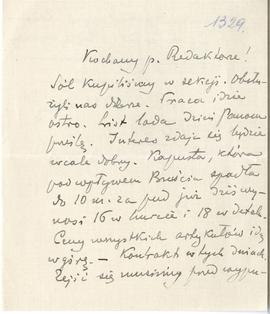 1329.
Kochany p. Redaktorze!
Sól kupiliśmy w sekcji. Obsłu-
żyli nas dobrze. Praca idzie
ostro. List lada dzień Panom
poślę. Interes zdaje się będzie
wcale dobry. Kapusta, która
pod wpływem Brześcia spadła
do 10 m. za pud już dziś wy-
nosi 16 w hurcie i 18 w detalu.
Ceny wszystkich artykułów idą
w górę. — Kontrakt w tych dniach.
Zejść się musimy przed wypu-